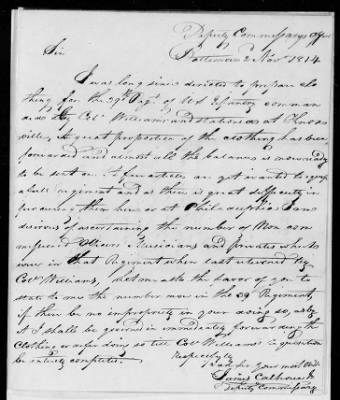 Deputy Commissarys office
Baltimore 2 Nov 1814
Sir
I was long since directed to prepare clo
thing for the 39th Regt of US Infantry comman
ded by Col Williams and stationed at Knox
ville, A great proportion of the clothing has been
forwarded and almost all the balance is now ready
to be sent on. A few articles are yet wanted to
a full regiment and as there is great difficulty in
procuring them here or at Philadelphia I am
desirous of ascertaining the number of Non com
missioned Officers, Musicians and privates who
were in that Regiment when last returned by
Col Williams, let me ask the favor of you to
state to me the number now in the 39 Regiment,
if there be no impropriety in your doing so, as by
it I shall be governed in immediately forwarding the
Clothing or defer doing so till Col Williams's requisition
be entirely completed.
Respectfully
Your most Obt
James Calhoun Jr
Deputy Commissary